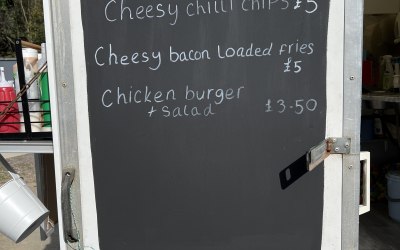 Cheesy chilli chips £5
Cheesy bacon Loaded fries
£5
Chicken burger
+ Salad £3-50